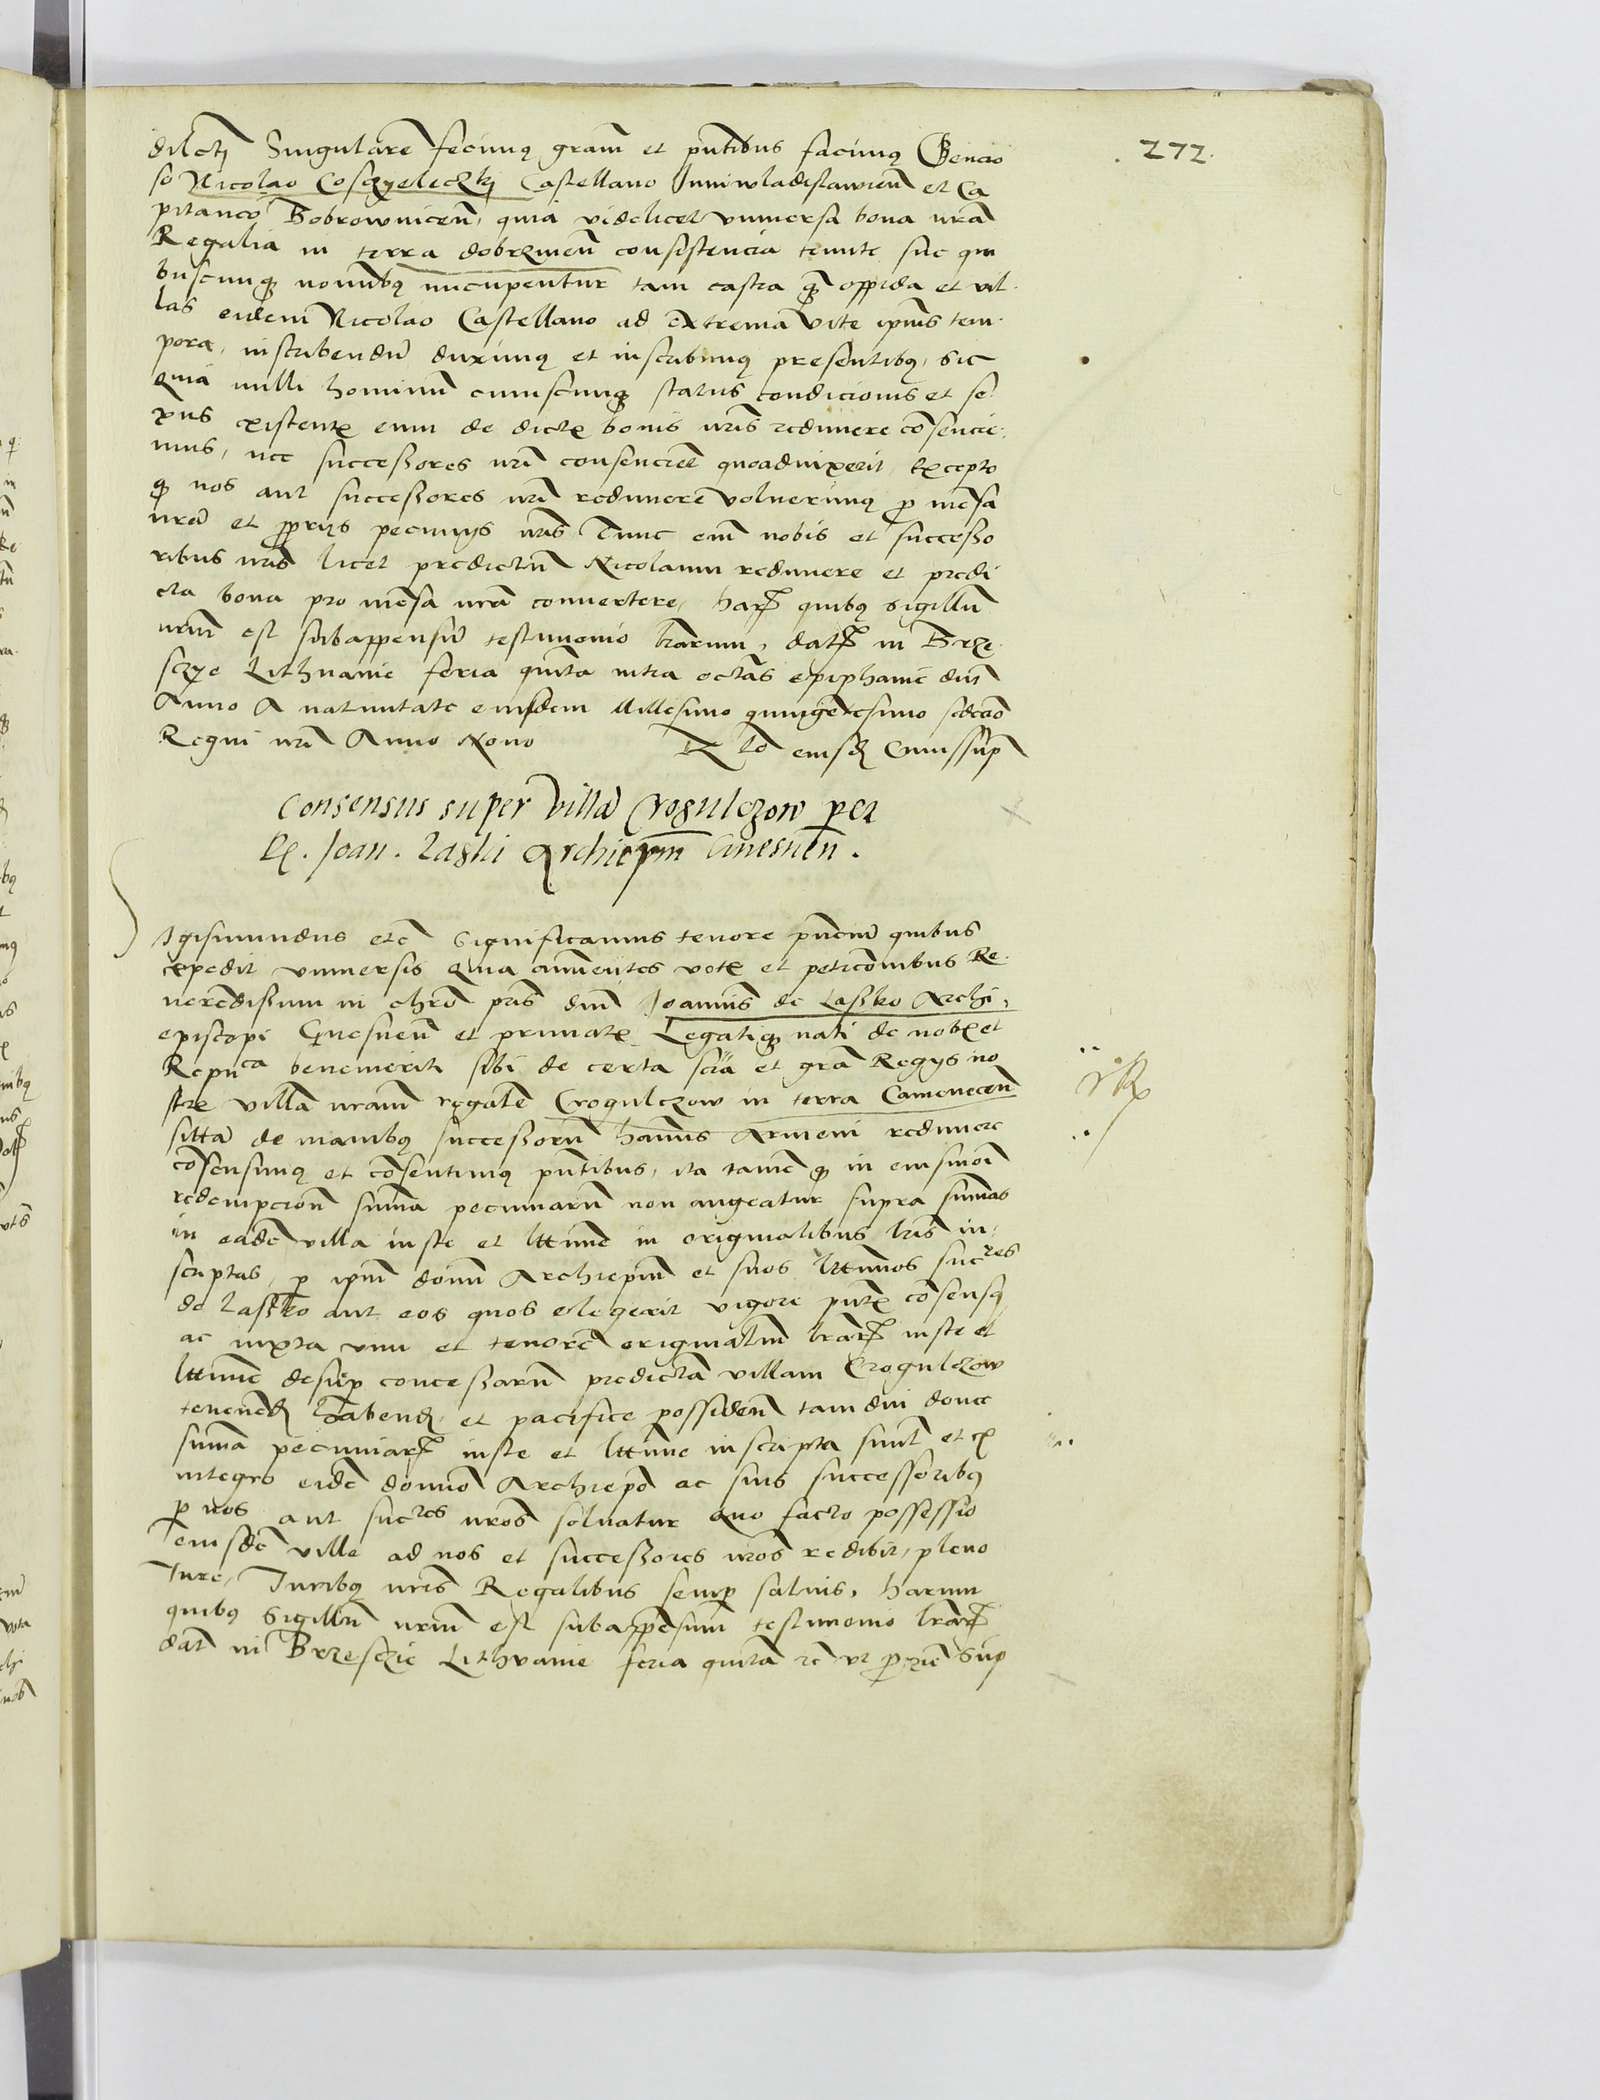 272
dilcti Singularem fecimus gram et pntibus facimus Genero
so Nicolao Cosczyeleczki Castellano Juniwladislawien et Ca
pitaneo Bobrownicen, quia videlicet vniuersa bona nra
Regalia in terra dobrzinen consistencia tenute siue qui
buscunq nominibq nuncupentur tam castra q oppida et vil
las eidem Nicolao Castellano ad Extrema vite ipius tem
pora, inscribendu duximq et inscribimq presentibq, sic
quia nulli hominu cuiuscunq status condicionis et se
xus existent eum de dict bonis nris redimere cosencie
mus, nec successores nri consencient quoaduixerit, Excepto
q nos aut successores nri redimere voluerimq p mesa
nra et pprijs pecunijs nris Tunc em nobis et successo
ribus nris licet predictum Nicolaum redimere et predi
cta bona pro mesa nra conuertere, har quibq sigillu
nrm est subappensu testimonio lrarum, dat in Brze
sczye Lithuanie feria quinta intra octas epiphanie dni
Anno A natiuitate eiusdem Millesimo quingentesimo sedecio
Regni nri Anno Nono R lo eiusd Cuiussup
Consensus super villa Crogulczow per
R. Joan. Laski Archiepm Gnesnen.
Igismundus etc Significamus tenore pncm quibus
expedit vniuersis quia annuentes vot et peticionibus Re
uerendissimi in chro pris dni Joannis de Lasko Archi
episcopi Gnesnen et primat Legatiq nati de nob et
Repuca benemeriti sibi de certa scia et gra Regijs no
stre villa nram regale Crogulczow in terra Camenecen
sitta de manibq successoru hannus Armeni redimere
cosensimq et cosentimq pntibus, ita tame q in eiusmoi
redempcion suma pecuniaru non augeatur supra sumas
in eade villa iuste et lttime in originalibus lris in
scriptas, p ipm domm Archiepm et suos lttimos sucres
de Lasko aut eos quos elegerit vigore pnt cosensq
ac iuxta vim et tenore originalium lrar iuste et
lttime desup concessaru predicta villam Crogulczow
tenend habend et pacifice possiden tam diu donec
suma pecuniar iuste et lttime inscripta sunt et ex
integro eide domio Archiepo ac suis successoribq
p nos aut sucres nros soluatur quo facto possessio
eiusde ville ad nos et successores nros redibit, pleno
Jure, Juribq nris Regalibus semp saluis, harum
quibq Sigillu nrm est subappesum testimonio lrar
dat in Brzesczie Lithuanie feria quinta